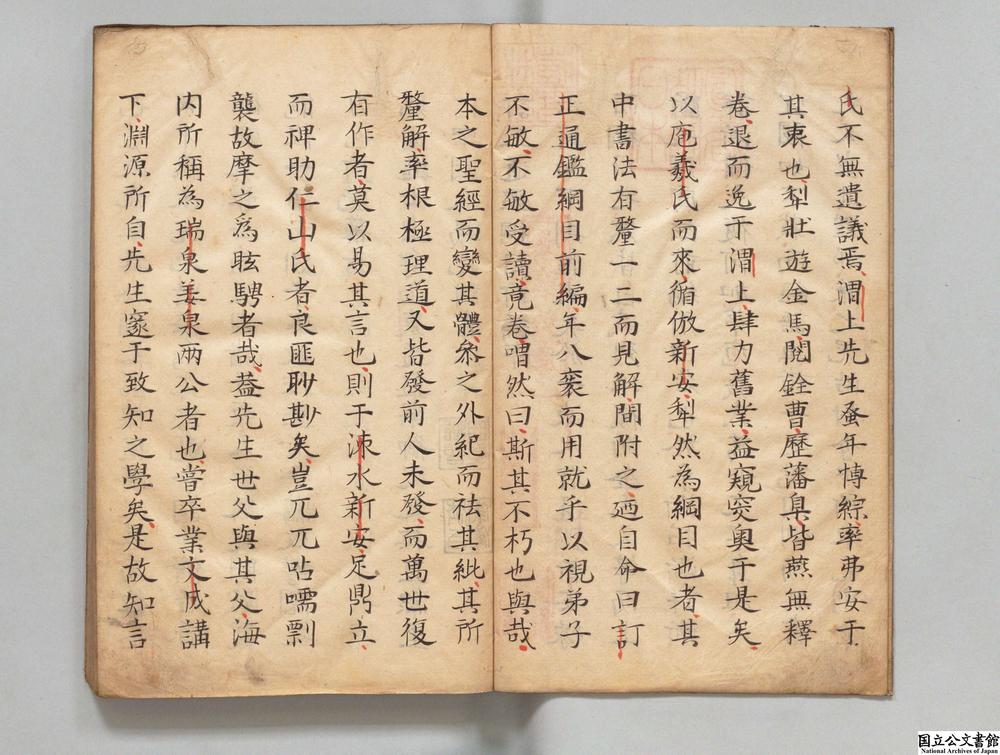 氏不無遺議焉渭上先生蚤年博綜率弗安于
其衷也犁壯遊金馬閱銓曹歷藩臬皆燕無釋
卷退而逸于渭上肆力舊業益窺突奧于是矣
以庖羲氏而來循倣新安犁然為綱目也者其
中書法有釐一二而見解間附之廼自命曰訂
正通鑑綱目前編年八袠而用就乎以視弟子
不敏不敏受讀竟卷喟然曰斯其不朽也與哉
本之聖經而變其體叅之外紀而祛其紕其所
釐解率根極理道又皆發前人未發而萬世復
有作者莫以易其言也則于涑水新安足鼎立
而裨助仁山氏者良匪眇尟矣豈兀兀呫嚅剽
襲故摩之爲眩騁者哉葢先生世父與其父海
内所稱為瑞泉姜泉兩公者也嘗卒業文成講
下淵源所自先生寔于致知之學矣是故知言
国立公文書館
National Archives of Japan